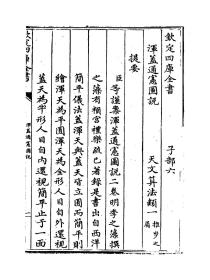 欽定四庫全書
子部六
渾蓋通憲圖說
天文算法類一
推步之屬
提要
臣等謹案渾蓋通憲圖說二卷明李之藻撰
之藻有頖宮禮樂疏已著錄是書出自西洋
簡平儀法蓋渾天與蓋天皆立圓而簡平則
繪渾天為平圓渾天為全形人目自外還視
蓋天為半形人目自內還視簡平止于一面
欽定四庫全書
渾蓋通憲圖說